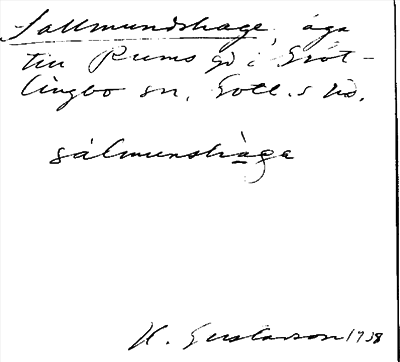 Sallmundshage, äga
till Rums gd i Gröt-
lingbo sn, Gotl. s hd.
sálmunshàga
H. Gustavson 1938